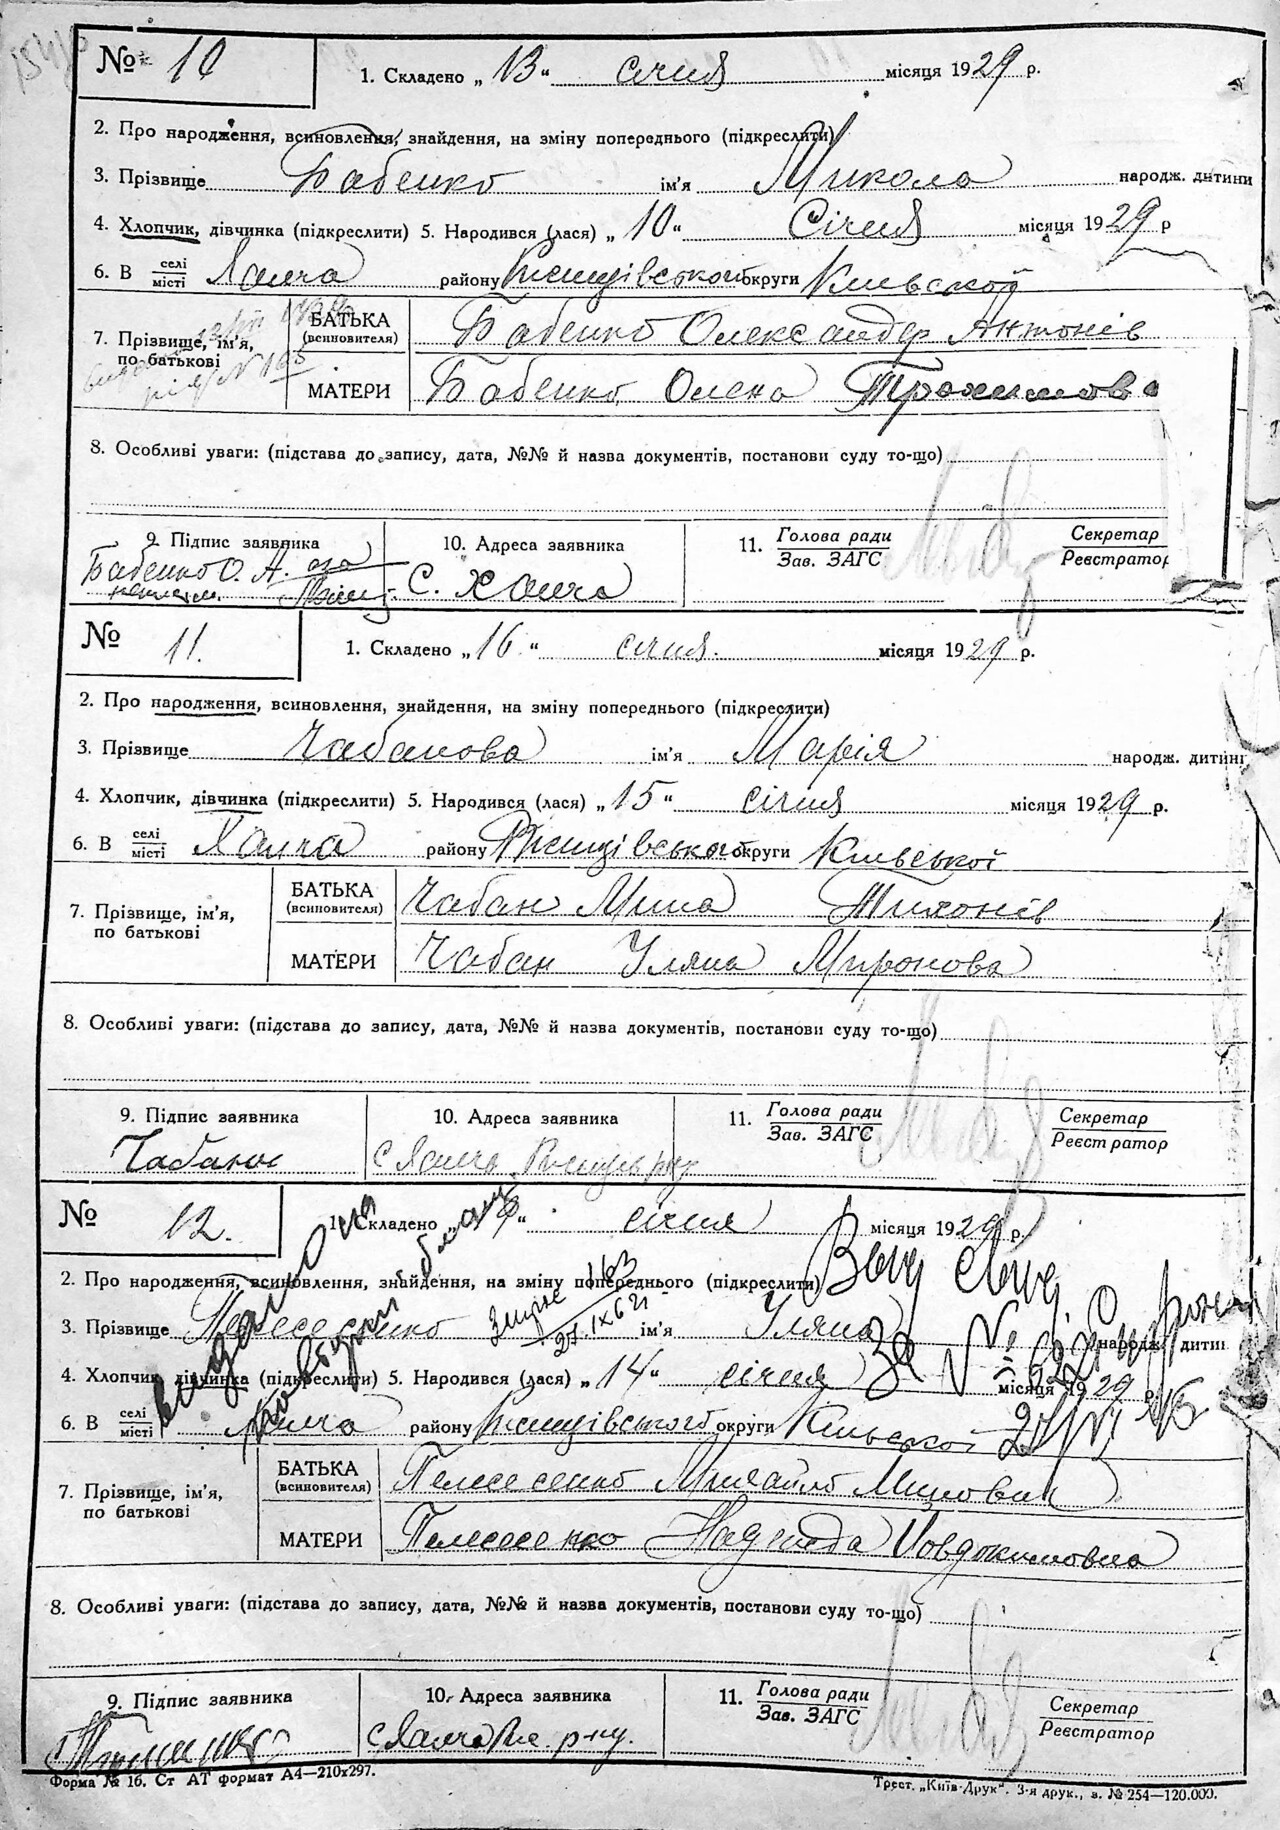 № 10
1. Складено „ 13 “ січня місяця 1929 р.
2. Про народження, всиновлення, знайдення, на зміну попереднього (підкреслити)
3. Прізвище Бабенко ім'я Микола народж. дитини
4. Хлопчик, дівчинка (підкреслити) 5. Народився (лася) „ 10 “ Січня місяця 1929 р
6. В селі місті Халча району Ржищівського округи Київської
7. Прізвище, ім'я, по батькові
БАТЬКА (всиновителя) Бабенко Олександер Антонів
МАТЕРИ Бабенко Олена Трохимова
8. Особливі уваги: (підстава до запису, дата, №№ й назва документів, постанови суду то-що)
9. Підпис заявника 10. Адреса заявника 11. Голова ради Зав. ЗАГС Секретар Реєстратор
Бабенко О. А. с. Халча
№ 11.
1. Складено „ 16 “ січня. місяця 1929 р.
2. Про народження, всиновлення, знайдення, на зміну попереднього (підкреслити)
3. Прізвище Чабанова ім'я Марія народж. дитини
4. Хлопчик, дівчинка (підкреслити) 5. Народився (лася) „ 15 “ січня місяця 1929 р.
6. В селі місті Халча району Ржищівського округи Київської
7. Прізвище, ім'я, по батькові
БАТЬКА (всиновителя) Чабан Мина Тихонів
МАТЕРИ Чабан Уляна Миронова
8. Особливі уваги: (підстава до запису, дата, №№ й назва документів, постанови суду то-що)
9. Підпис заявника 10. Адреса заявника 11. Голова ради Зав. ЗАГС Секретар Реєстратор
с Халча
№ 12.
1. Складено січня місяця 1929 р.
2. Про народження, всиновлення, знайдення, на зміну попереднього (підкреслити)
3. Прізвище ім'я Уляна народж. дитини
4. Хлопчик, дівчинка (підкреслити) 5. Народився (лася) „ 14 “ січня місяця 1929 р
6. В селі місті Халча району Ржищівського округи Київської
7. Прізвище, ім'я, по батькові
БАТЬКА (всиновителя) Михайло
МАТЕРИ
8. Особливі уваги: (підстава до запису, дата, №№ й назва документів, постанови суду то-що)
9. Підпис заявника 10. Адреса заявника 11. Голова ради Зав. ЗАГС Секретар Реєстратор
с Халча р-ну.
Форма № 16. Ст АТ формат А4—210х297. Трест. „Київ-Друк“. 3-я друк., з. № 254—120.000.